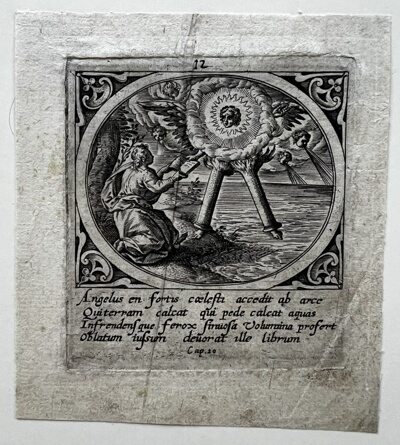 12
Angelus en fortis cœlesti accedit ab arce
Qui terram calcat quâ pede calcat aquas
Infrendensque ferox sinuosa Volumina profert
Oblatum iussum deuorat ille librum
Cap.10